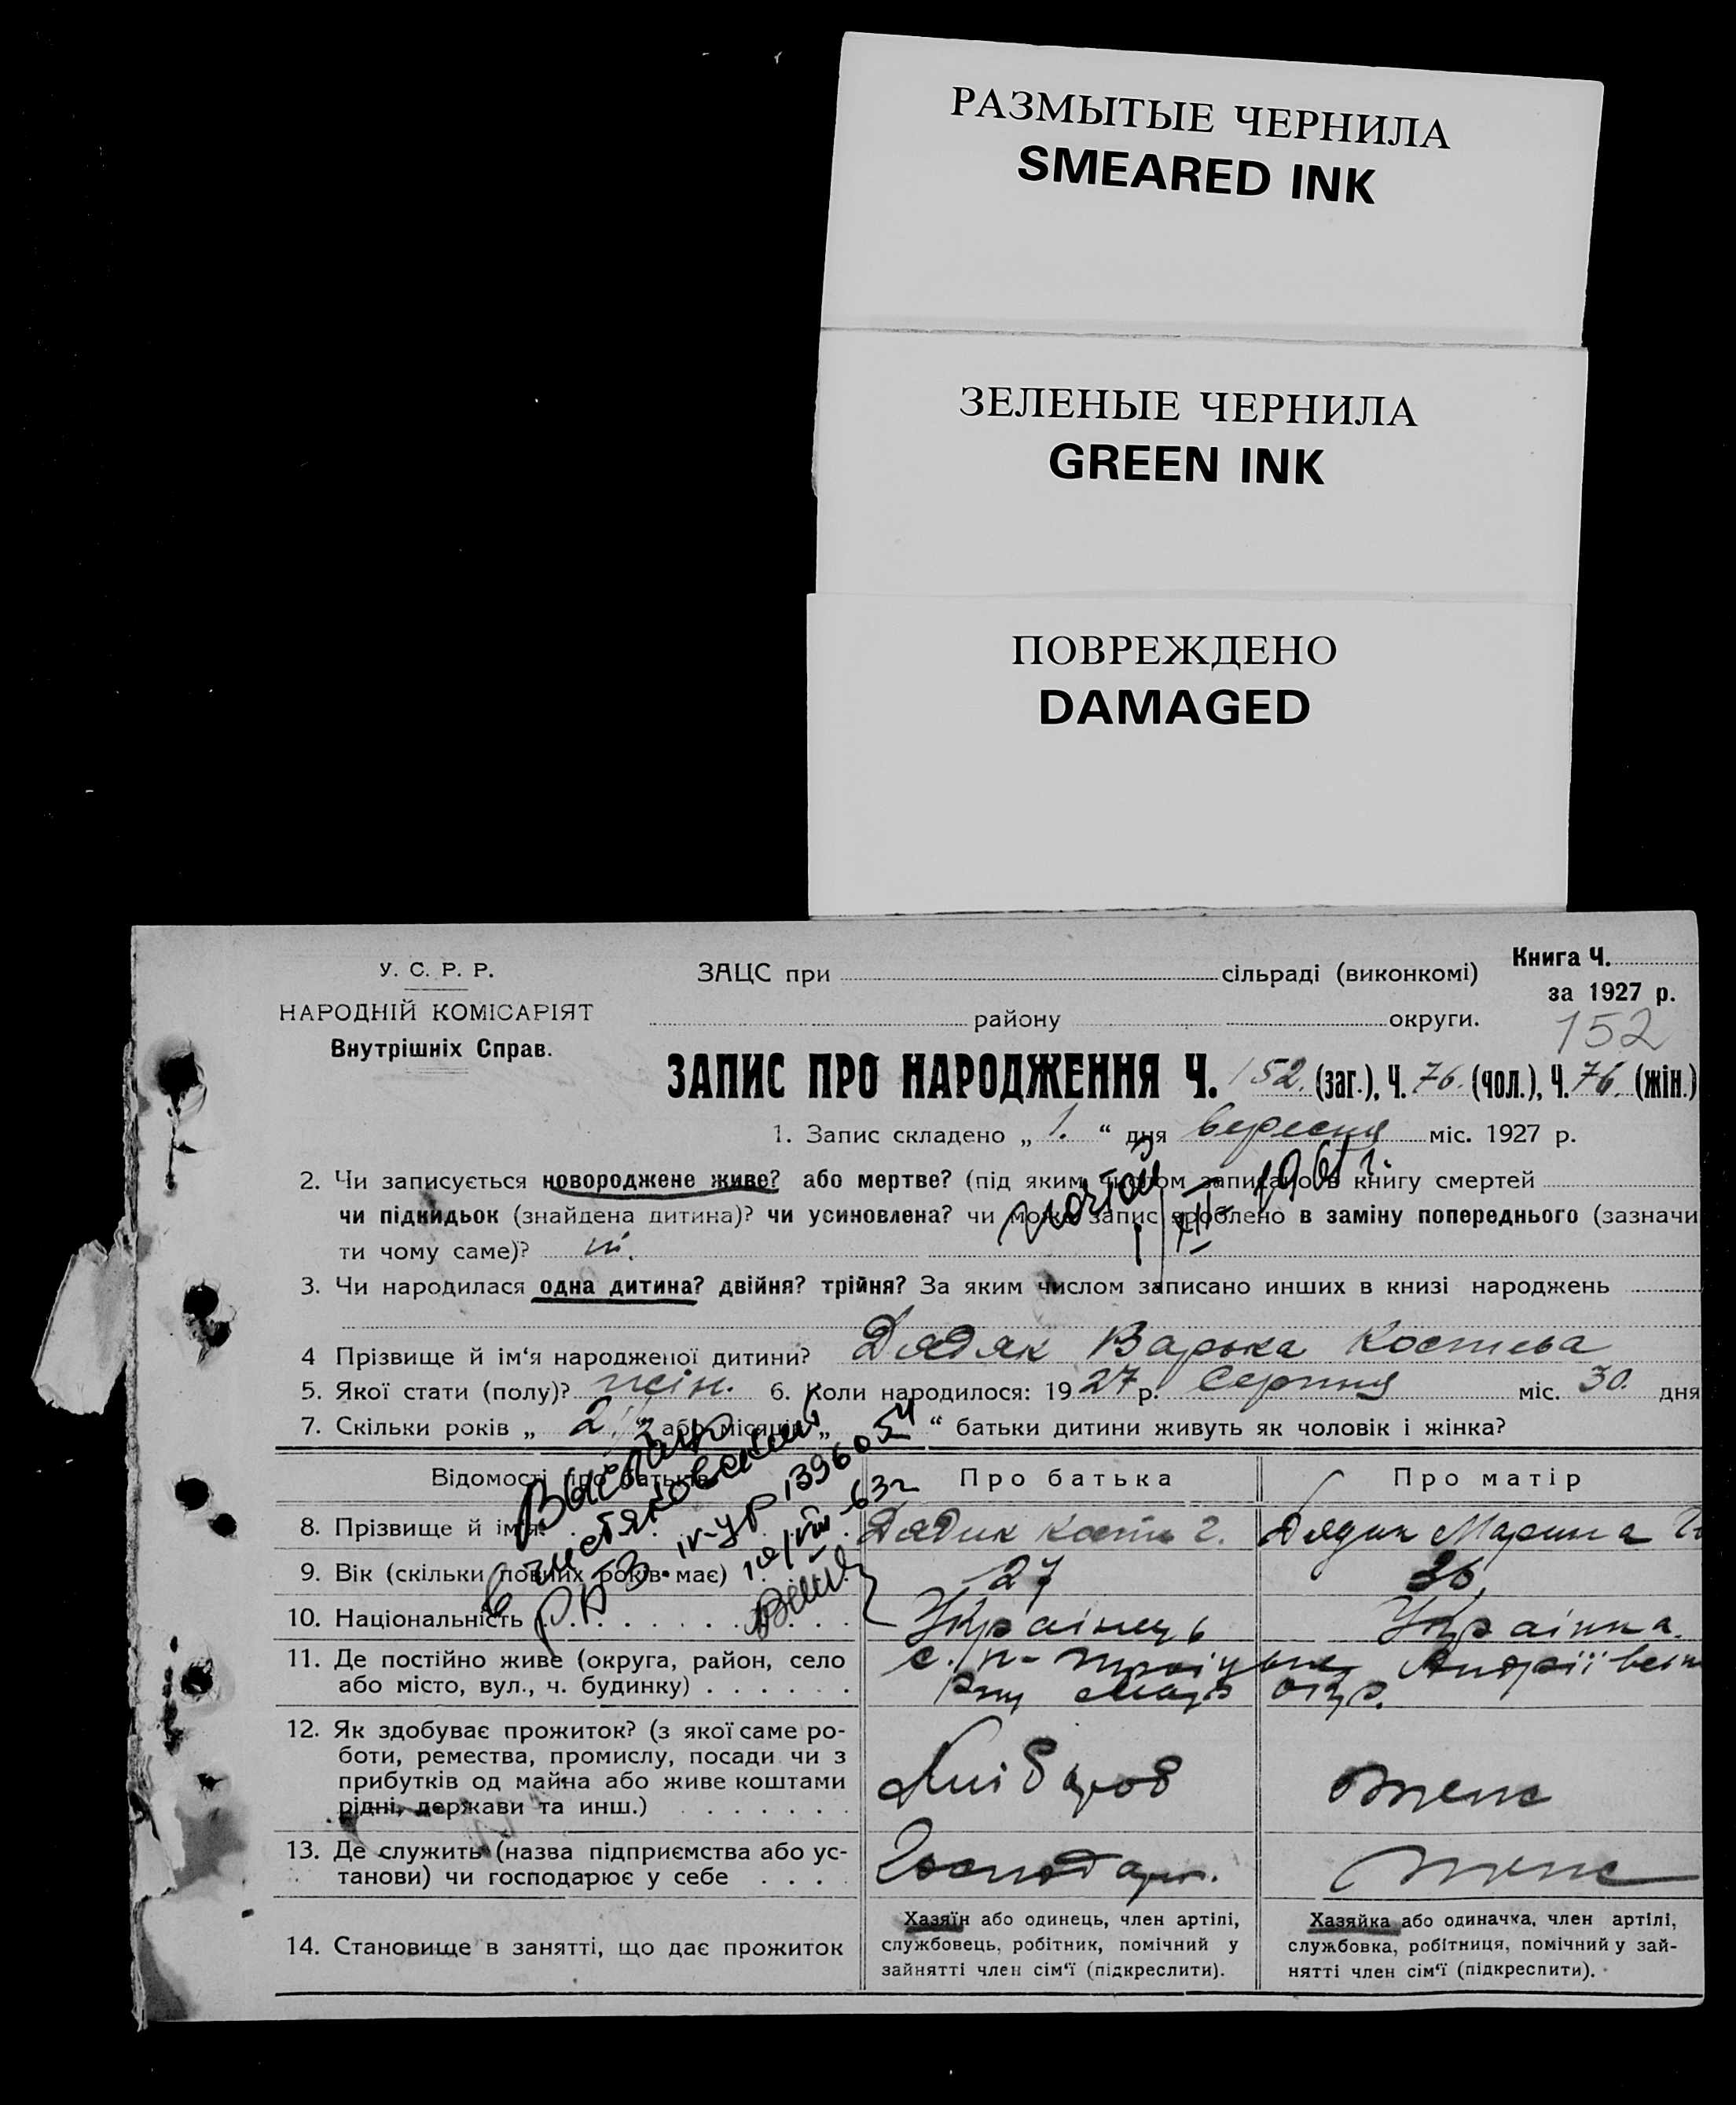 РАЗМЫТЫЕ ЧЕРНИЛА
SMEARED INK
ЗЕЛЕНЫЕ ЧЕРНИЛА
GREEN INK
ПОВРЕЖДЕНО
DAMAGED
У. С. Р. Р.
НАРОДНІЙ КОМІСАРІЯТ
Внутрішніх Справ.
ЗАЦС при сільраді (виконкомі)
району округи.
Книга Ч.
за 1927 р.
152
ЗАПИС ПРО НАРОДЖЕННЯ Ч. 152. (заг.), Ч. 76. (чол.), Ч. 76. (жін.)
1. Запис складено „ 1. “ дня вересня міс. 1927 р.
2. Чи записується новороджене живе? або мертве? (під яким числом записано в книгу смертей
чи підкидьок (знайдена дитина)? чи усиновлена? чи може запис зроблено в заміну попереднього (зазначи
ти чому саме)? ні.
3. Чи народилася одна дитина? двійня? трійня? За яким числом записано инших в книзі народжень
4 Прізвище й ім‘я народженої дитини? Дядик Варька Костева
5. Якої стати (полу)? жін. 6. Коли народилося: 1927 р. Серпня міс. 30. дня
7. Скільки років „ 2 або місяців „ “ батьки дитини живуть як чоловік і жінка?
1396054
Відомості про батьків Про батька Про матір
8. Прізвище й ім‘я Дядик Кость Г. Дядик Марина
9. Вік (скільки повних років має) 27 26
10. Національність Українець Українка.
11. Де постійно живе (округа, район, село
або місто, вул., ч. будинку) с. Андріївсь
окр.
12. Як здобуває прожиток? (з якої саме ро-
боти, ремества, промислу, посади чи з
прибутків од майна або живе коштами
рідні, держави та инш.) Хлібороб теж
13. Де служить (назва підприємства або ус-
танови) чи господарює у себе Господар. теж
14. Становище в занятті, що дає прожиток
Хазяїн або одинець, член артілі,
службовець, робітник, помічний у
зайнятті член сім‘ї (підкреслити).
Хазяйка або одиначка, член артілі,
службовка, робітниця, помічний у зай-
нятті член сім‘ї (підкреслити).